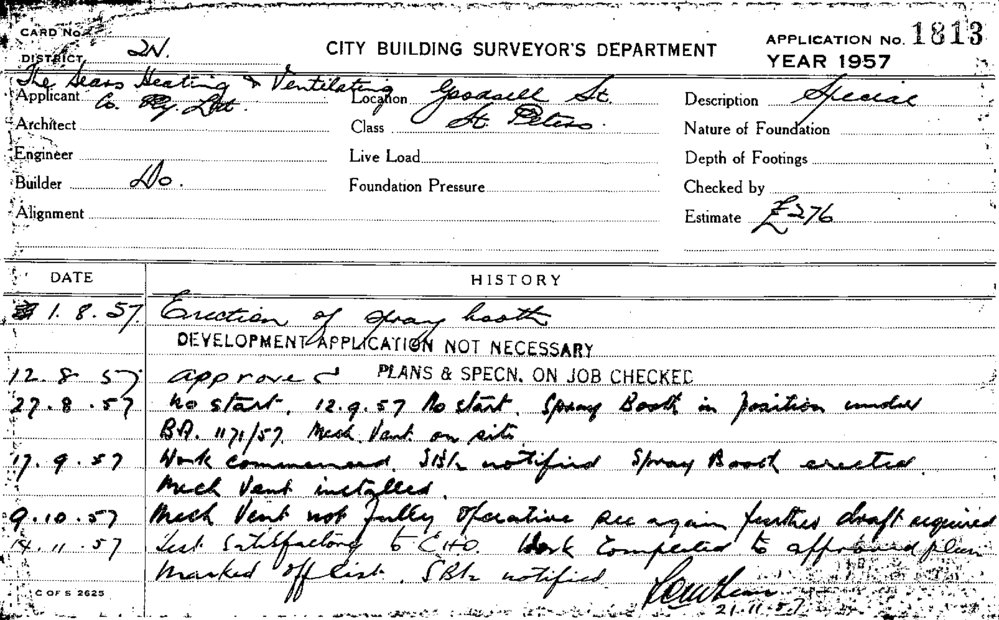 CARD No.
DISTRICT 2N.
CITY BUILDING SURVEYOR'S DEPARTMENT
APPLICATION No. 1813
YEAR 1957
The Sears Heating & Ventilating
Applicant Co. Pty. Ltd.
Location Goodsell St.
Description Special
Architect
Class St. Peters.
Nature of Foundation
Engineer
Live Load
Depth of Footings
Builder Do.
Foundation Pressure
Checked by
Alignment
Estimate £276
DATE
HISTORY
1.8.57. Erection of spray booth
DEVELOPMENT APPLICATION NOT NECESSARY
12.8.57 approved PLANS & SPECN. ON JOB CHECKED
27.8.57 No start. 12.9.57 No start. Spray Booth in position under
B.A. 1171/57. Mech. Vent on site
17.9.57 Work commenced. notified Spray Booth erected.
Mech Vent installed.
9.10.57 Mech Vent not fully Operative see again further draft required
14.11.57 Test Satisfactory to C.H.O. Work Completed to approved plan
Marked off list. notified
21.11.57
C OF S 2625